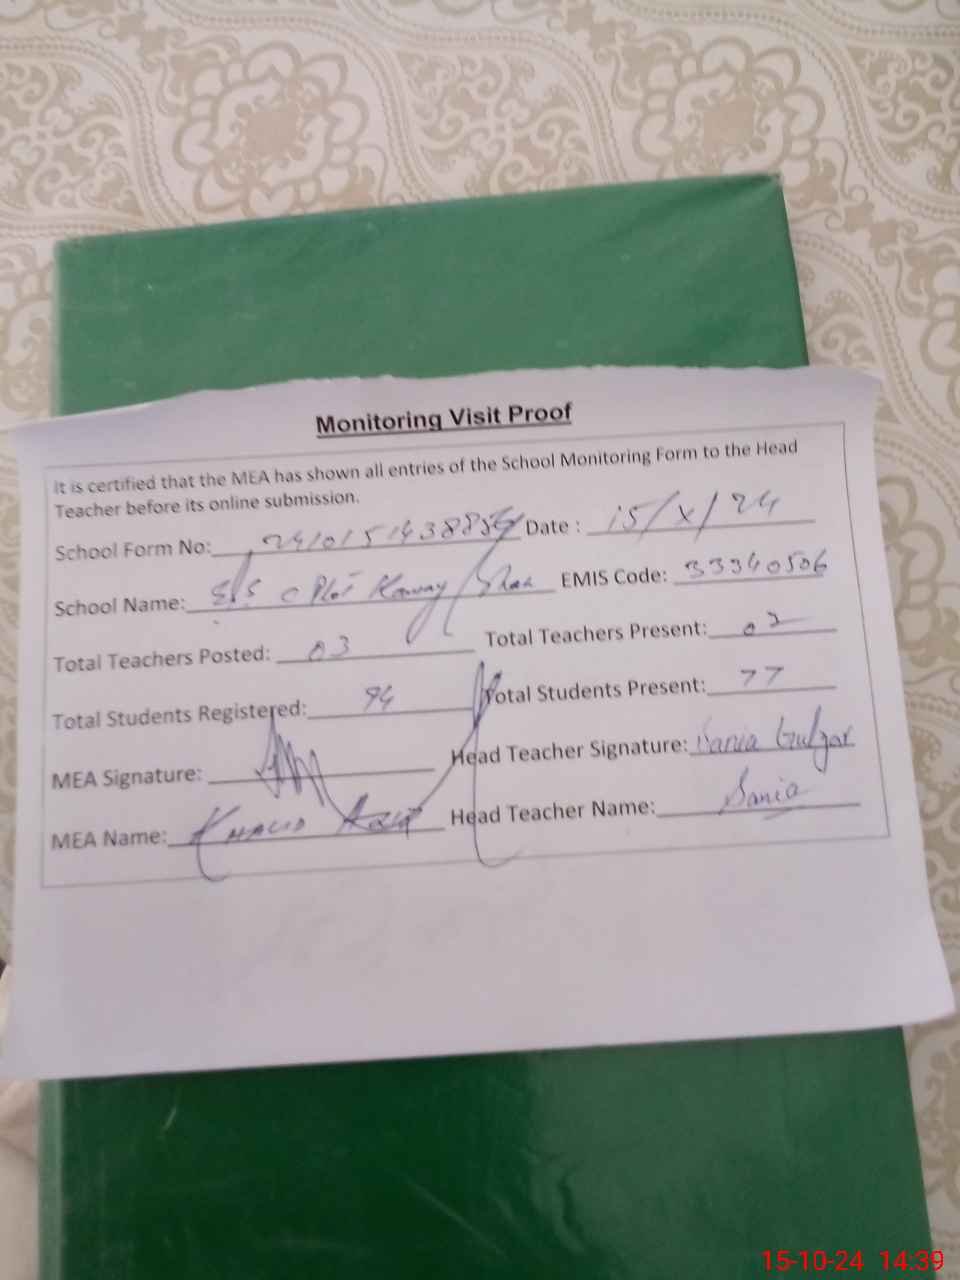 Monitoring Visit Proof
It is certified that the MEA has shown all entries of the School Monitoring Form to the Head
Teacher before its online submission.
School Form No: Date : 15/X/24
School Name: EMIS Code: 33340506
Total Teachers Posted: 03 Total Teachers Present: 02
Total Students Registered: 94 Total Students Present: 77
MEA Signature: Head Teacher Signature: Sania Gulzar
MEA Name: Khalid Head Teacher Name: Sania
15-10-24 14:39